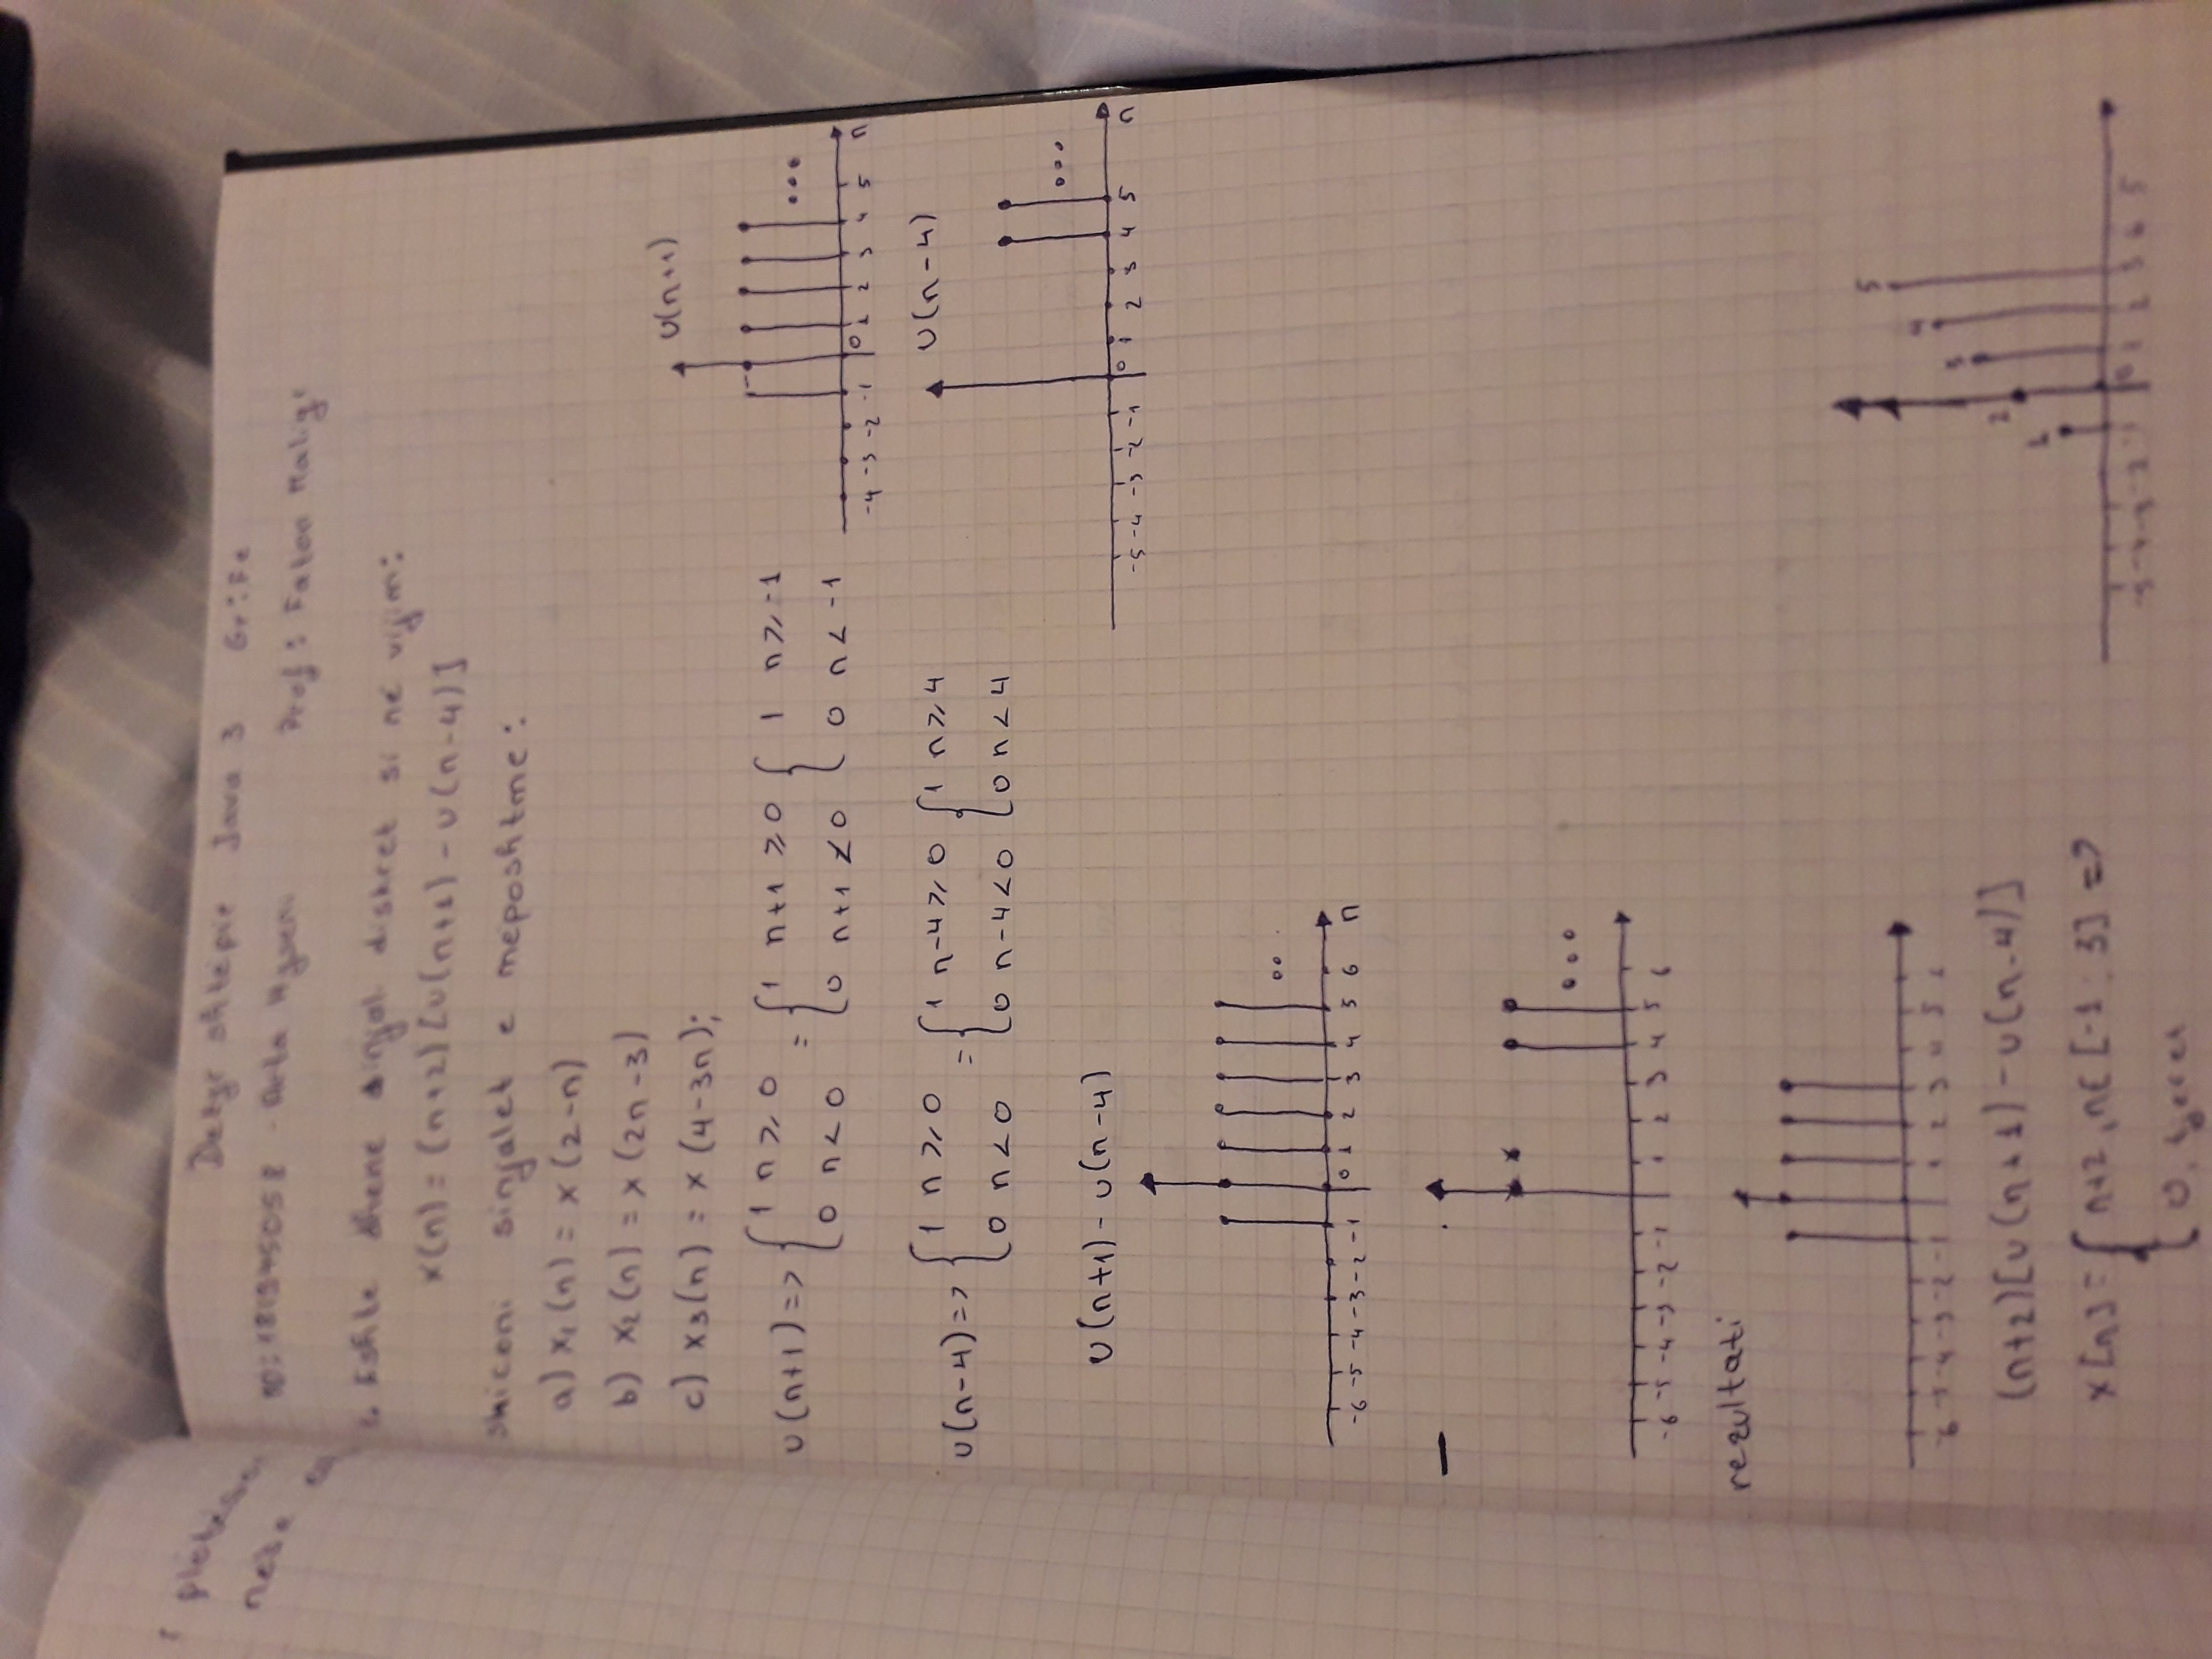 Detyr shtëpie Java 3 Gr:Fe
ID:181945058 - Arta Hyseni Prof: Faton Maliqi
Eshte dhene sinjal diskret si në vijim:
x(n) = (n+2)[u(n+1) - u(n-4)]
skiconi sinjalet e meposhtme:
a) x₁(n) = x(2-n)
b) x₂(n) = x(2n-3)
c) x₃(n) = x(4-3n);
u(n+1)
u(n+1)=> { 1 n≥0 = { 1 n+1≥0 { 1 n≥-1
0 n<0 0 n+1<0 0 n<-1
-4 -3 -2 -1 0 1 2 3 4 5 n
u(n-4)
u(n-4)=> { 1 n≥0 = { 1 n-4≥0 { 1 n≥4
0 n<0 0 n-4<0 0 n<4
-5 -4 -3 -2 -1 0 1 2 3 4 5 n
u(n+1) - u(n-4)
-6 -5 -4 -3 -2 -1 0 1 2 3 4 5 6 n
-
-6 -5 -4 -3 -2 -1 1 2 3 4 5 6
rezultati
-6 -5 -4 -3 -2 -1 1 2 3 4 5 6
1 2 3 4 5
-5 -4 -3 -2 -1 0 1 2 3 4 5
(n+2)[u(n+1) - u(n-4)]
x[n] = { n+2, n∈[-1: 3] =>
0, tjeret